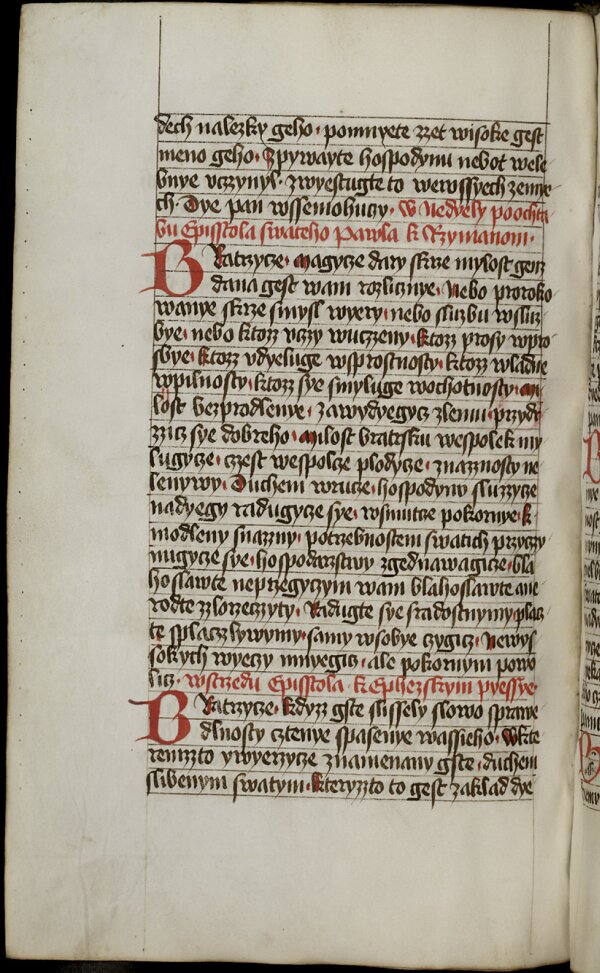 dech nalezky geho · pomnyete zzet wisoke gest
meno geho · Zpywayte hospodynu nebot wele
bnye vczynyl · zwyestugte to wewssyech zemye
ch · Dye pan wssemohuczy · W nedyely poochta
bu Episstola swateho Pawla k Rzymanom ·
Bratrzycze · Magycze dary skrze mylost genz
dana gest wam rozlicznye · Nebo proroko
wanye skrze smysl wyery · nebo sluzbu w sluz
bye · nebo ktozz vczy w uczzeny · ktozz prosy w pro
sbye · ktozz vdyeluge w sprostnosty · ktozz wladne
w pilnosty · ktozz sye smyluge w ochotnosty · mi
lost bez prodlenye · zawydyegycz zlemu · przydr
zzicz sye dobreho · milost bratrsku wespolek my
lugycze · czest wespolcze plodycze · snaznosty ne
lenywy · Duchem wrucze · hospodynu sluzzycze
nadyegy radugycze sye · w smutcze pokornye · k
modleny snazny · potrzebnostem swatich przyczy
nugycze sye · hospodarzstwy zgednawagicze · bla
hoslawte neprzegyczym wam blahoslawte a ne
rodte zlorzeczyty · Radugte sye s radostnymy placz
te s placzlywymy · samy w sobye czygicz · Ne wys
sokych wyeczy mnyegicz · ale pokornym powo
licz · w strzedu Episstola k Ephezskym pyessye ·
Bratrzycze · kdyzz gste slissely slowo sprawe
dlnosty cztenye spasenye wassieho · W kte
remzzto y wyerzycze znamenany gste · duchem
slibenym swatym · kteryzzto to gest zaklad dye